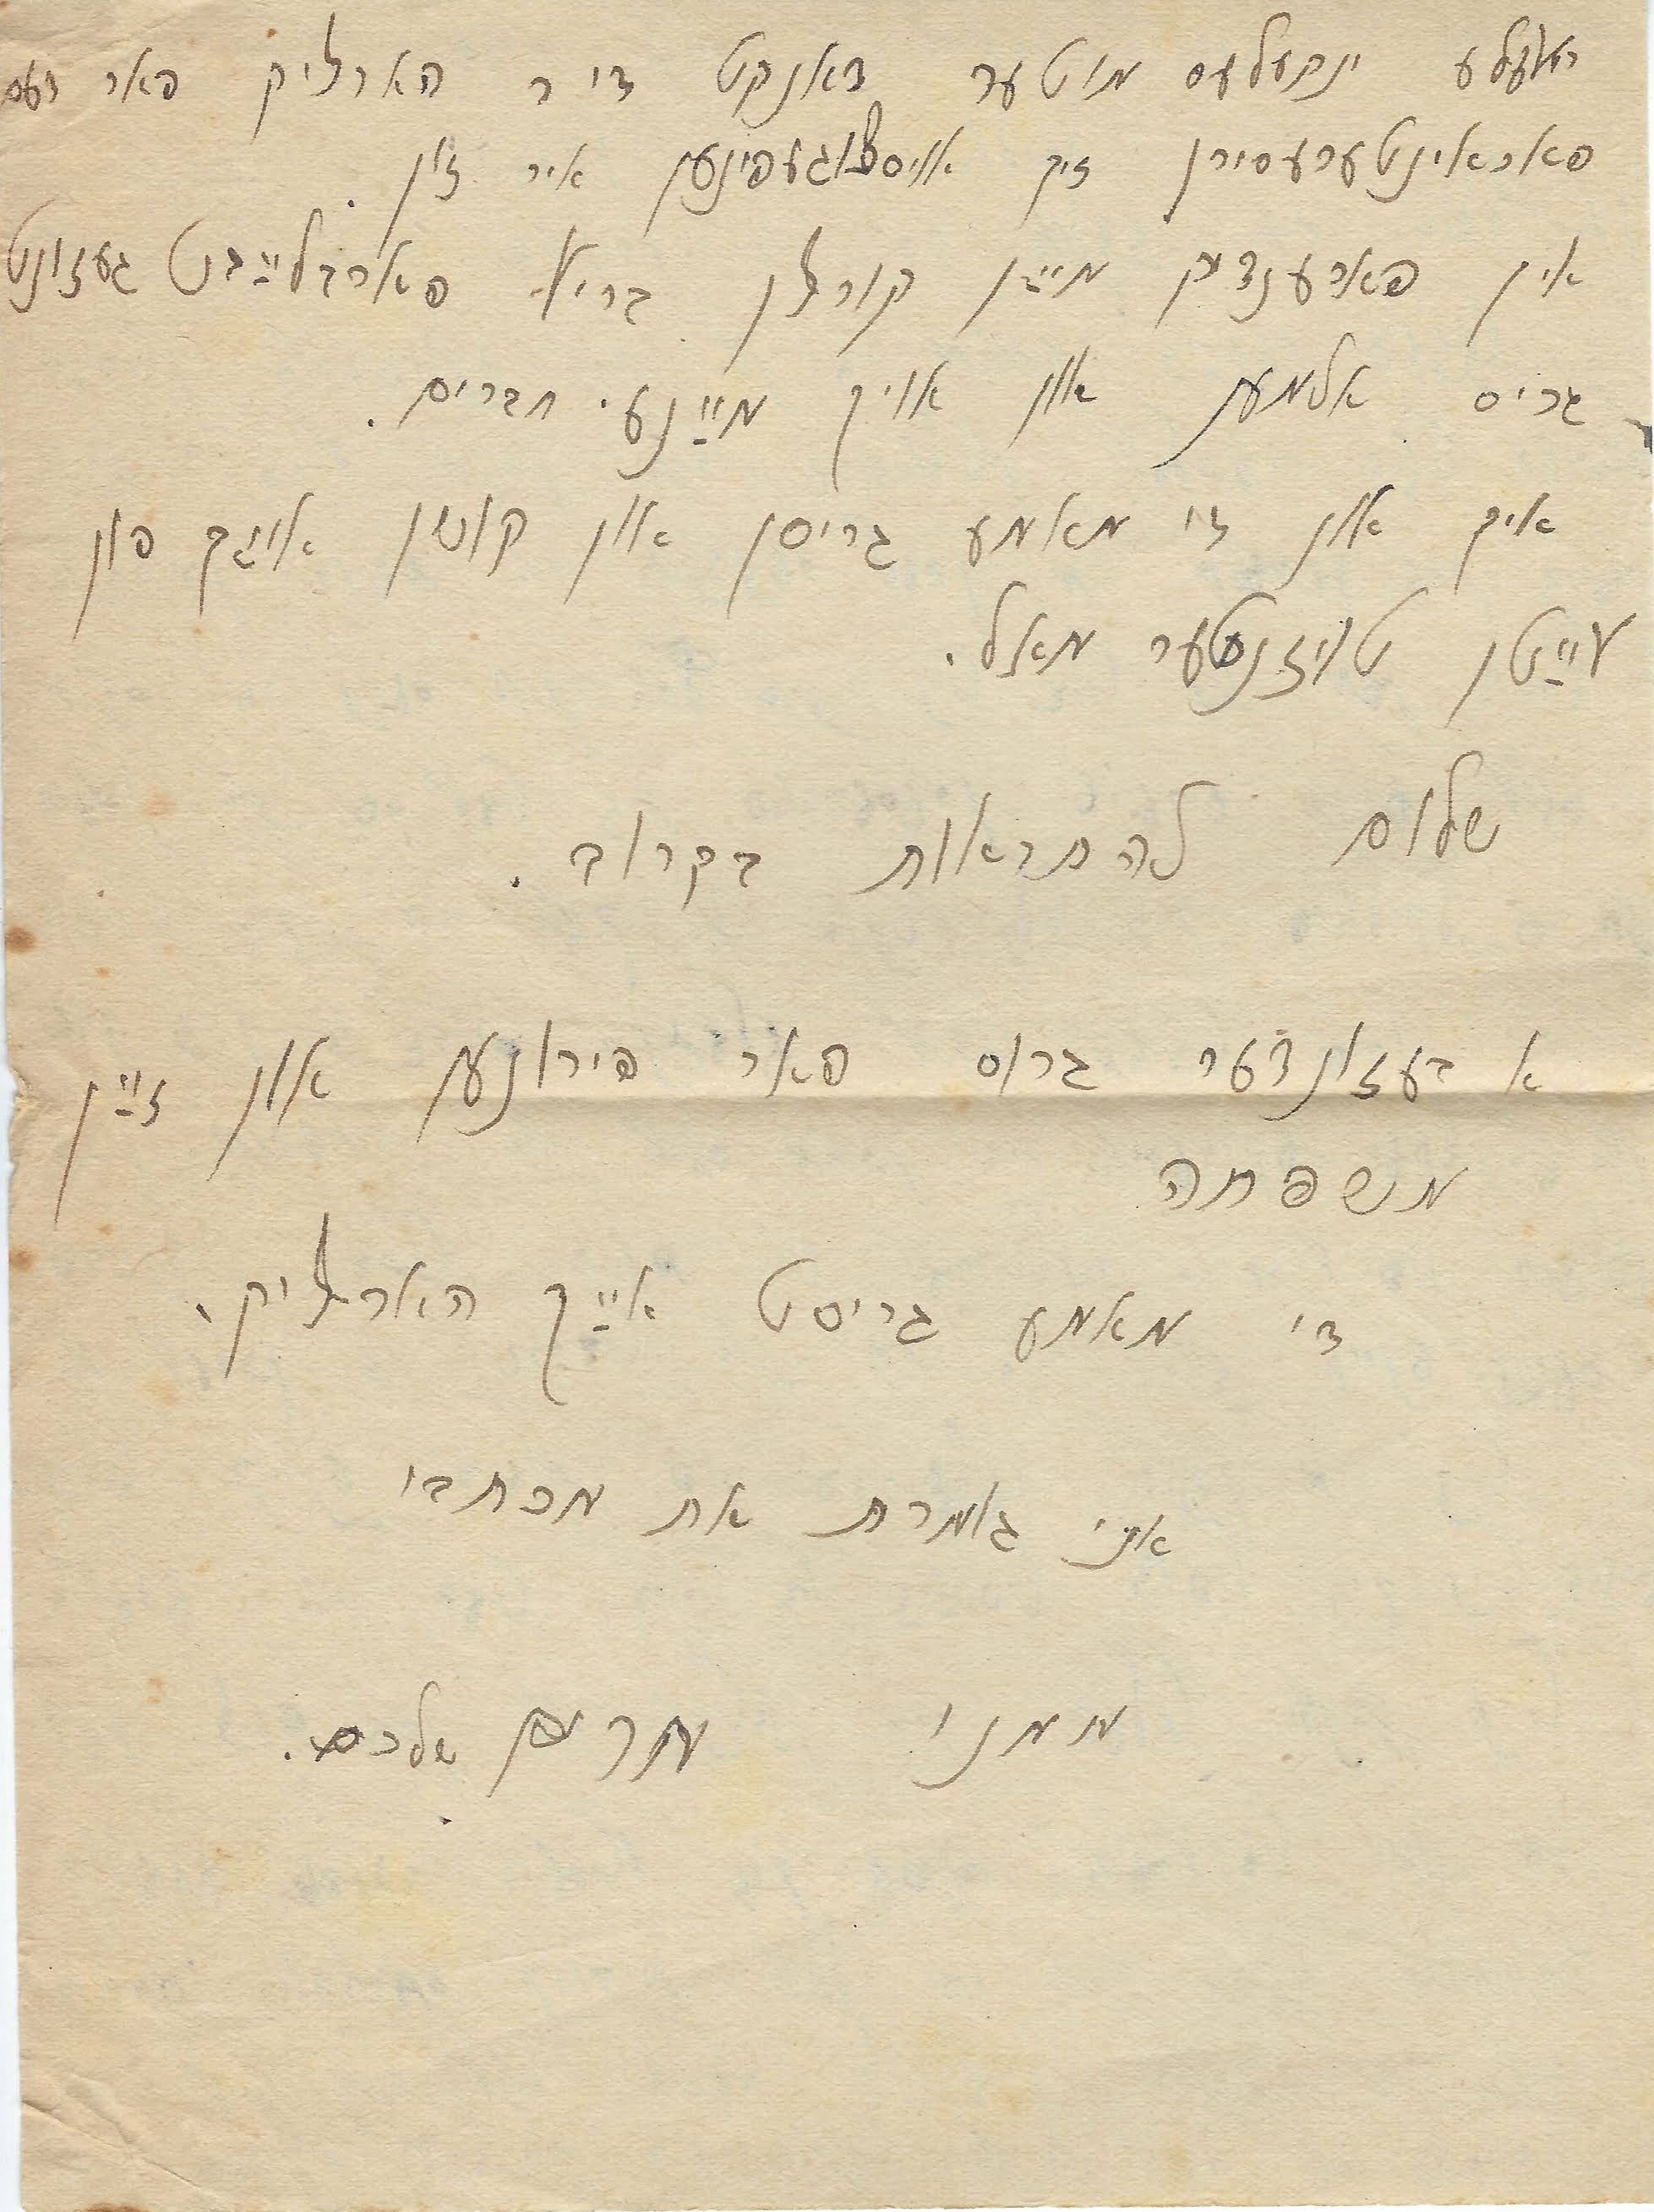 יעקעלעס מוטער דאנקט דיר הארציק פאר דעם
פאראינטערעסירן זיך אויסצוגעפינען איר זון.
איך פארענדיק מיין קורצן בריוו פארבלײַבט געזונט
גריס אלעמען און אויך מײַנע חברים.
איך און די מאמע גריסן און קושן אײַך פון
ווײַטן טויזנטער מאל.
שלום להתראות בקרוב.
א בעזונדער גרוס פאר און זײַן
משפחה
די מאמע גריסט אײַך הארציק.
אני גומרת את מכתבי
ממני מרים שלכם.